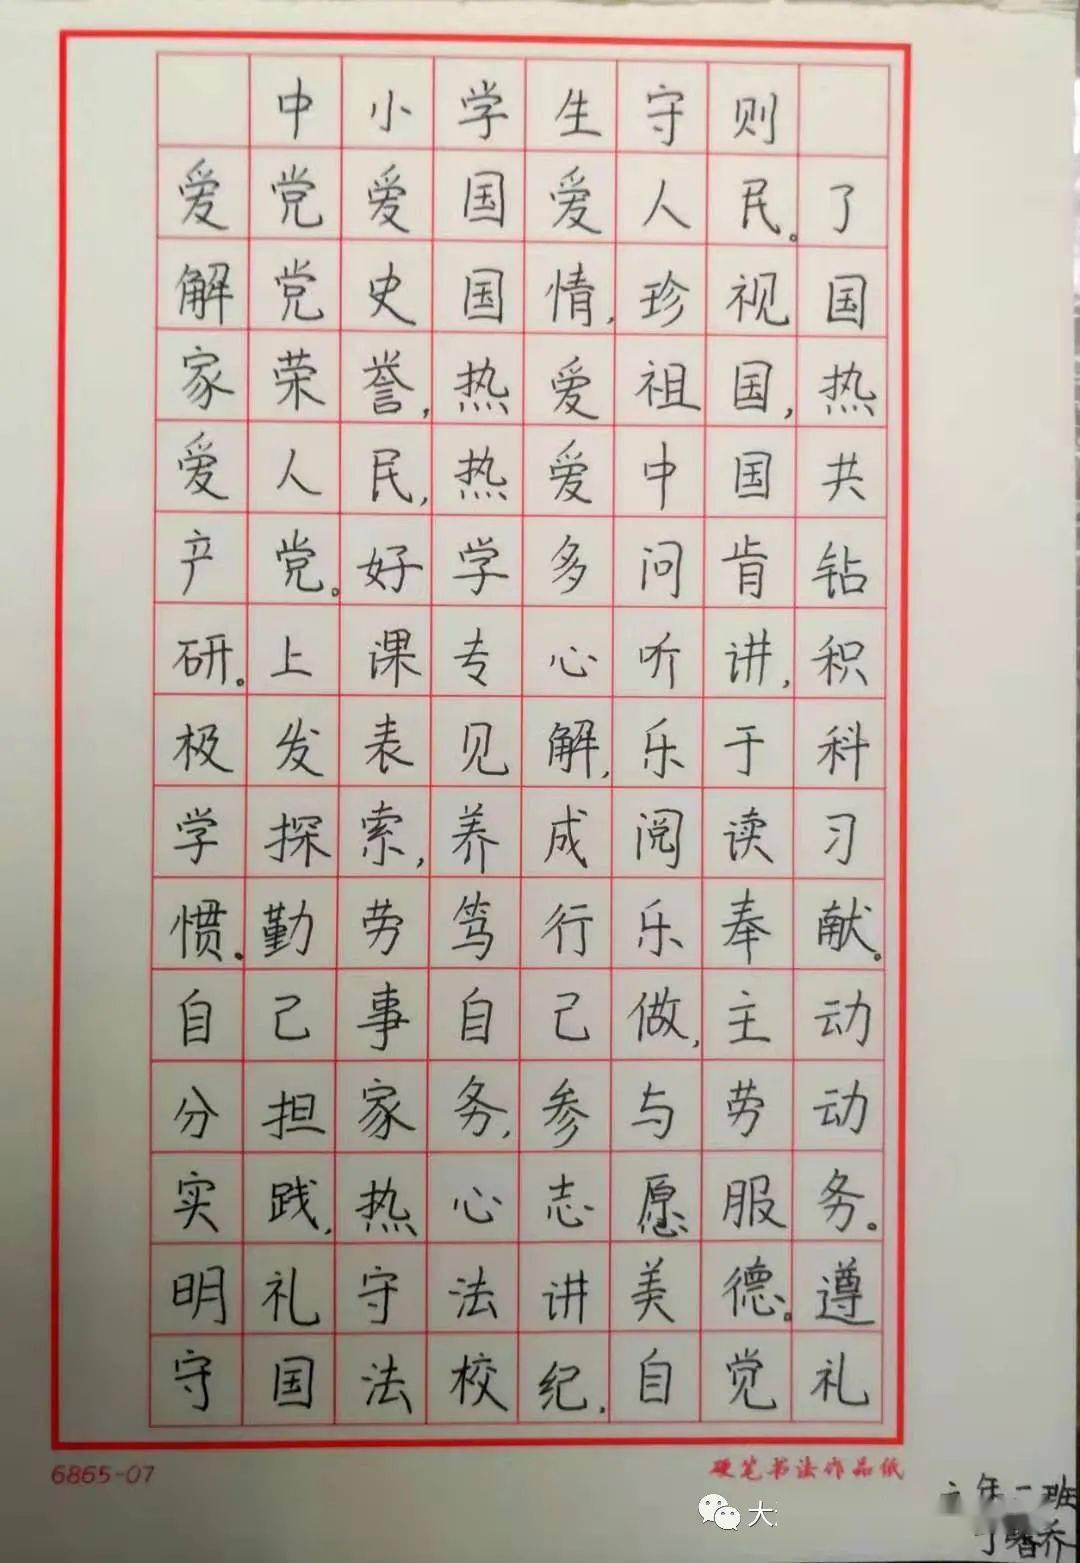 中小学生守则
爱党爱国爱人民。了
解党史国情,珍视国
家荣誉,热爱祖国,热
爱人民,热爱中国共
产党。好学多问肯钻
研。上课专心听讲,积
极发表见解,乐于科
学探索,养成阅读习
惯。勤劳笃行乐奉献。
自己事自己做,主动
分担家务,参与劳动
实践,热心志愿服务。
明礼守法讲美德。遵
守国法校纪,自觉礼
6865-07
硬笔书法作品纸
年一班
乔
大